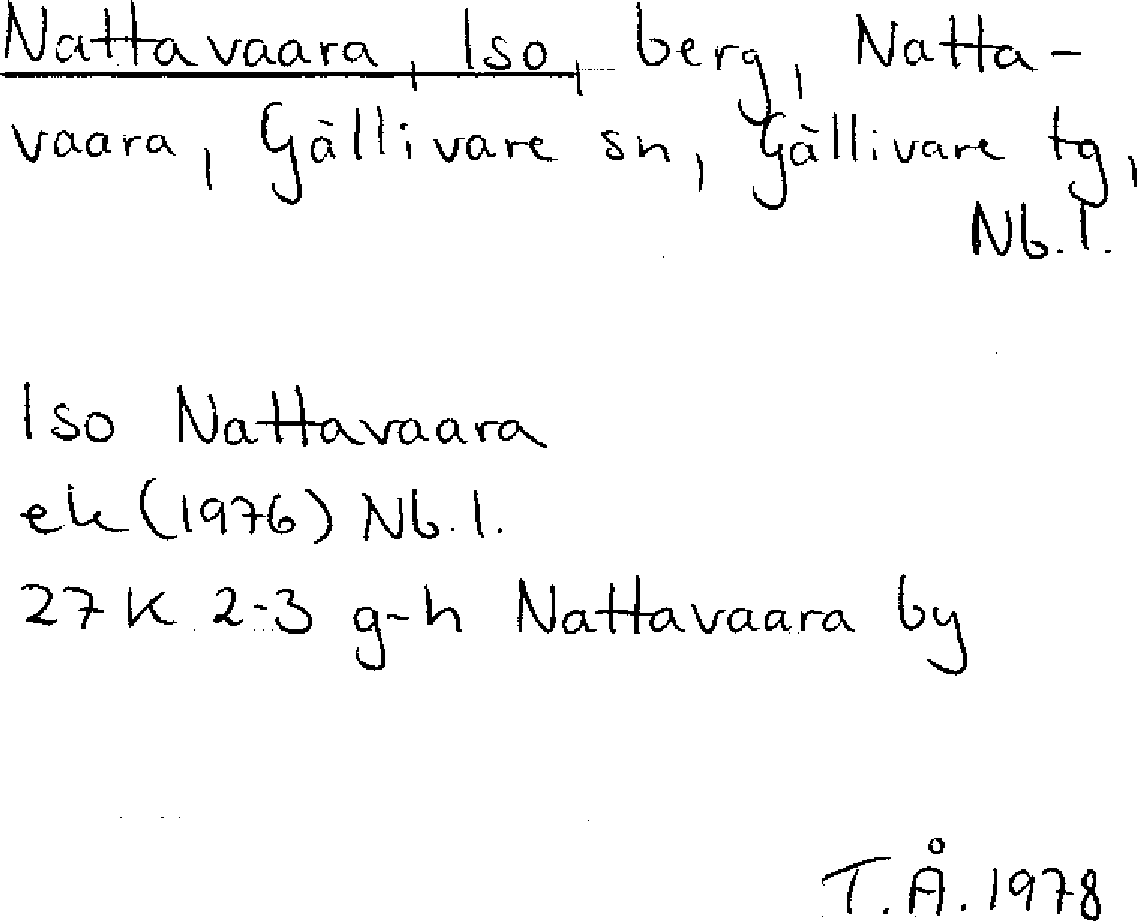 Nattavaara, Iso, berg, Natta-
vaara, Gällivare sn, Gällivare tg,
Nb.l.
Iso Nattavaara
ek (1976) Nb.l.
27 K 2-3 g-h Nattavaara by
T.Å. 1978